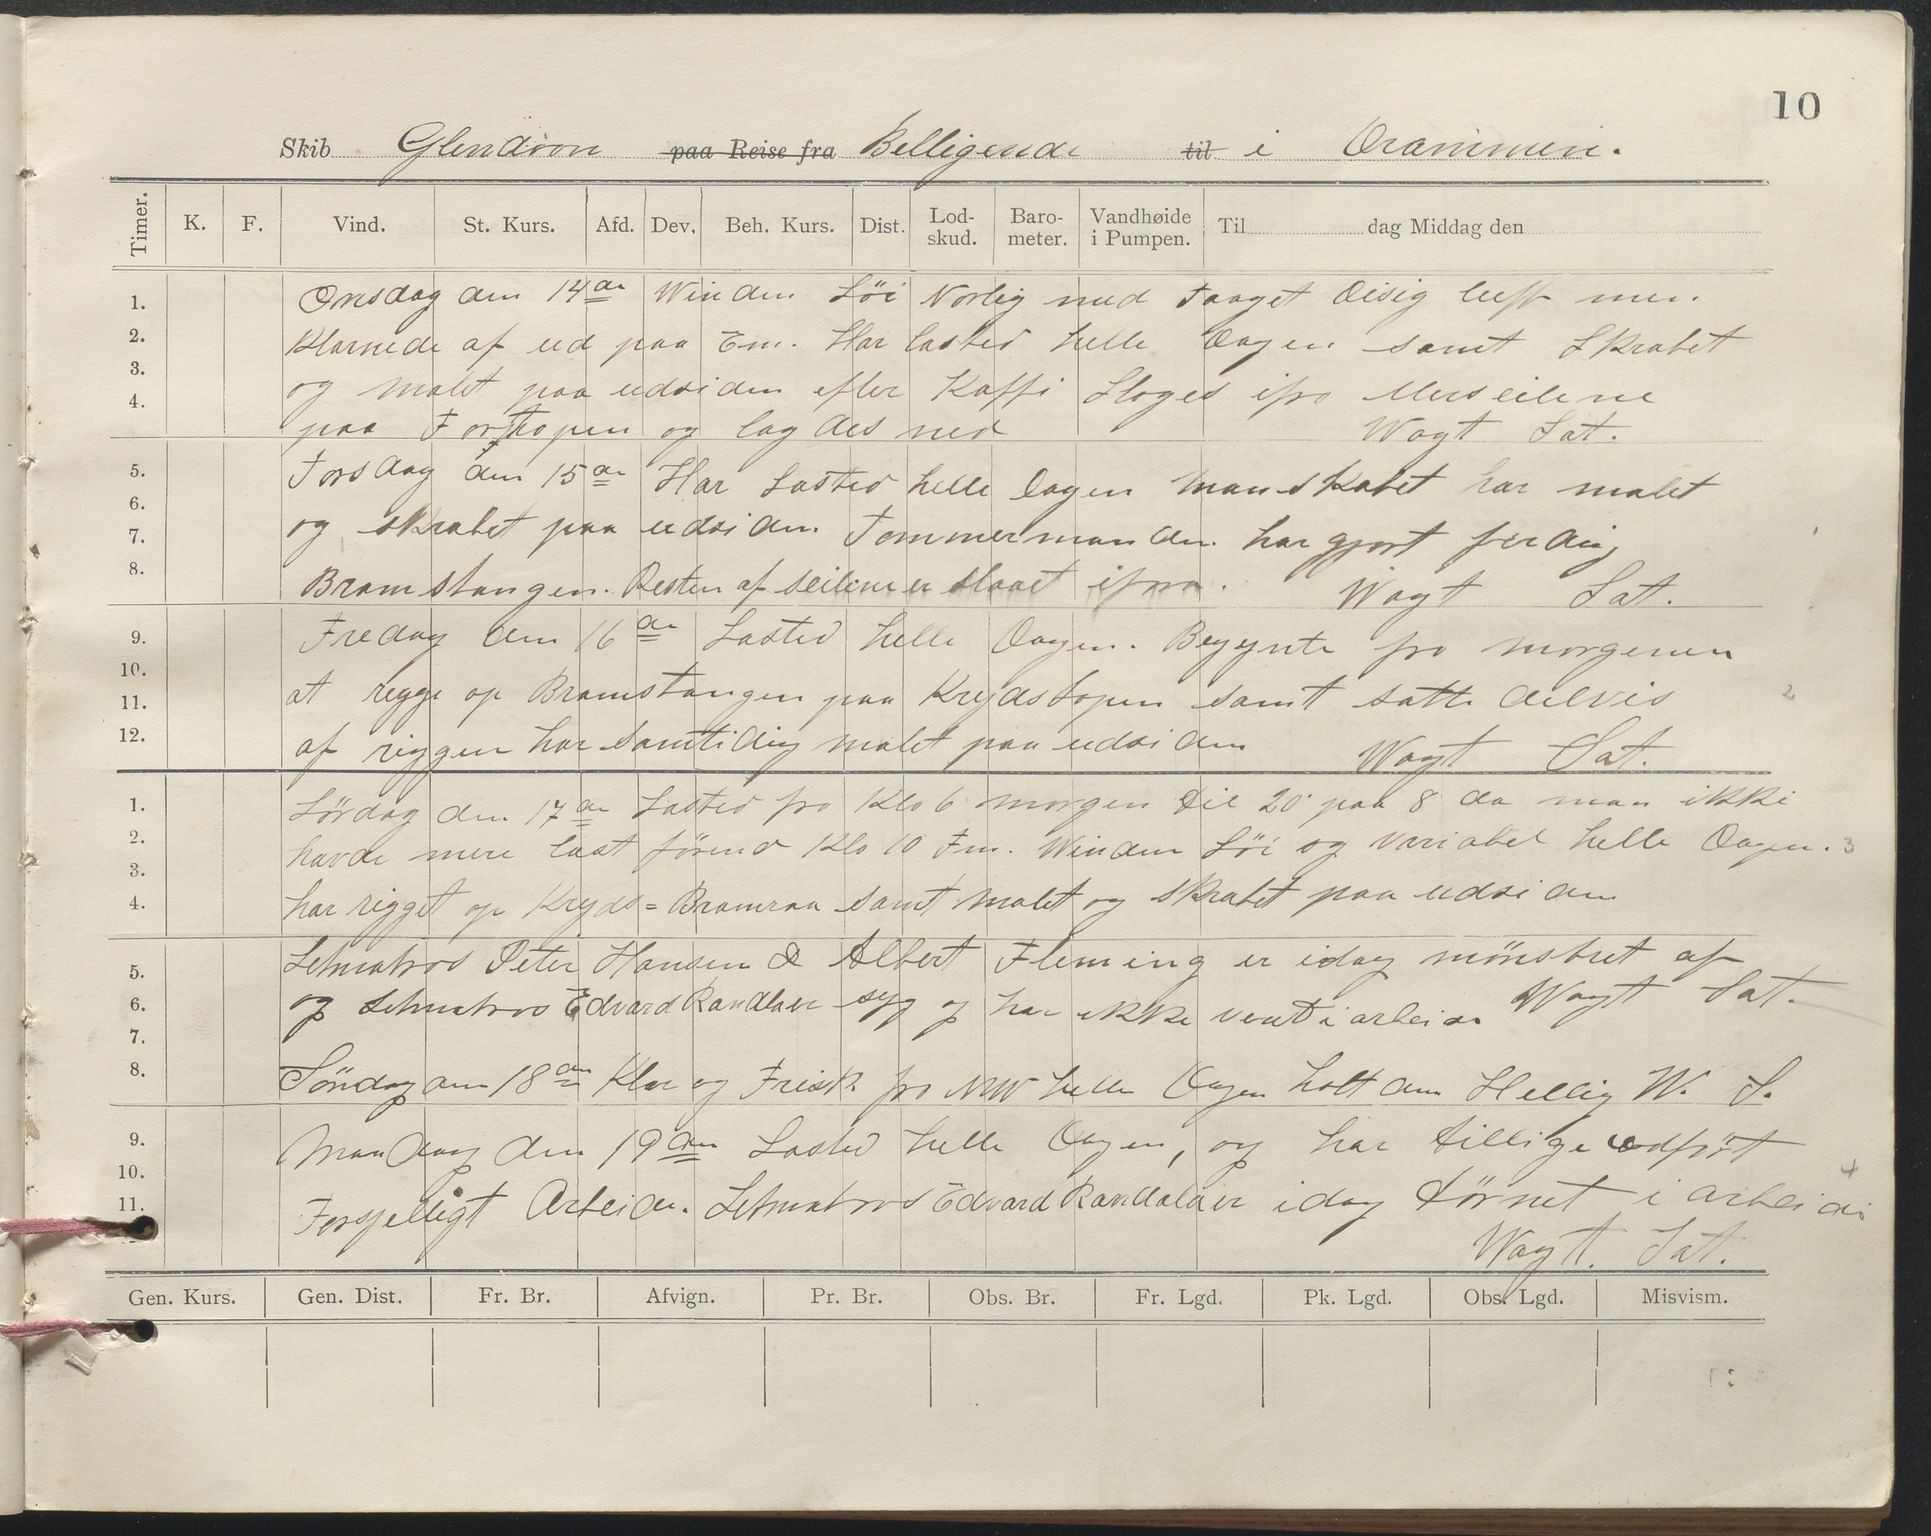 10
Skib Glendoon paa Reise fra Belligende til i Drammen.
Timer. K. F. Vind. St. Kurs. Afd. Dev. Beh. Kurs. Dist. Lod-skud. Baro-meter. Vandhøide i Pumpen. Til dag Middag den
1. Onsdag den 14de Winden Löi Norlig med Taaget Disig luft men
2. Klarnede af ud paa Em. Har lasted helle Dagen samt Skrabet
3. og malet paa udsiden efter Kaffi Sloges ifra Merseilene
4. paa Fortopen og lagdes ned Wagt Sat.
5. Torsdag den 15de Har Lasted helle Dagen Manskabet har malet
6. og skrabet paa udsiden Tommermanden har gjort ferdig
7. Bramstangen. Resten af seilene er slaaet ifra. Wagt Sat.
8.
9. Fredag den 16de Lasted helle Dagen. Begynte fra morgenen
10. at regge op Bramstangen paa Krydstopen samt satte delvis 2
11. af riggen har samtidig malet paa udsiden Wagt Sat.
12.
1. Lördag den 17de Lasted fra Klo 6 morgen til 20 paa 8 da man ikke
2. havde mere last förend Klo 10 Fm. Winden Löi og variabel helle Dagen. 3
3. har rigget op Kryds = Bramraa samt malet og skrabet paa udsiden
4.
5. Letmatros Peter Hansen & Albert Fleming er idag mönstret af
6. og Letmatros Edvard Randla er syg og har ikke vert i arbeide Wagt Sat.
7.
8. Söndag den 18de Klar og Frisk fra NW helle Dagen holt den Hellig W. S.
9. Mandag den 19de Lasted helle Dagen, og har tillige udfört
10. Forsjelligt Arbeide. Letmatros Edvard Randala er idag törnet i arbeide 4
11. Wagt. Sat.
Gen. Kurs. Gen. Dist. Fr. Br. Afvign. Pr. Br. Obs. Br. Fr. Lgd. Pk. Lgd. Obs. Lgd. Misvism.